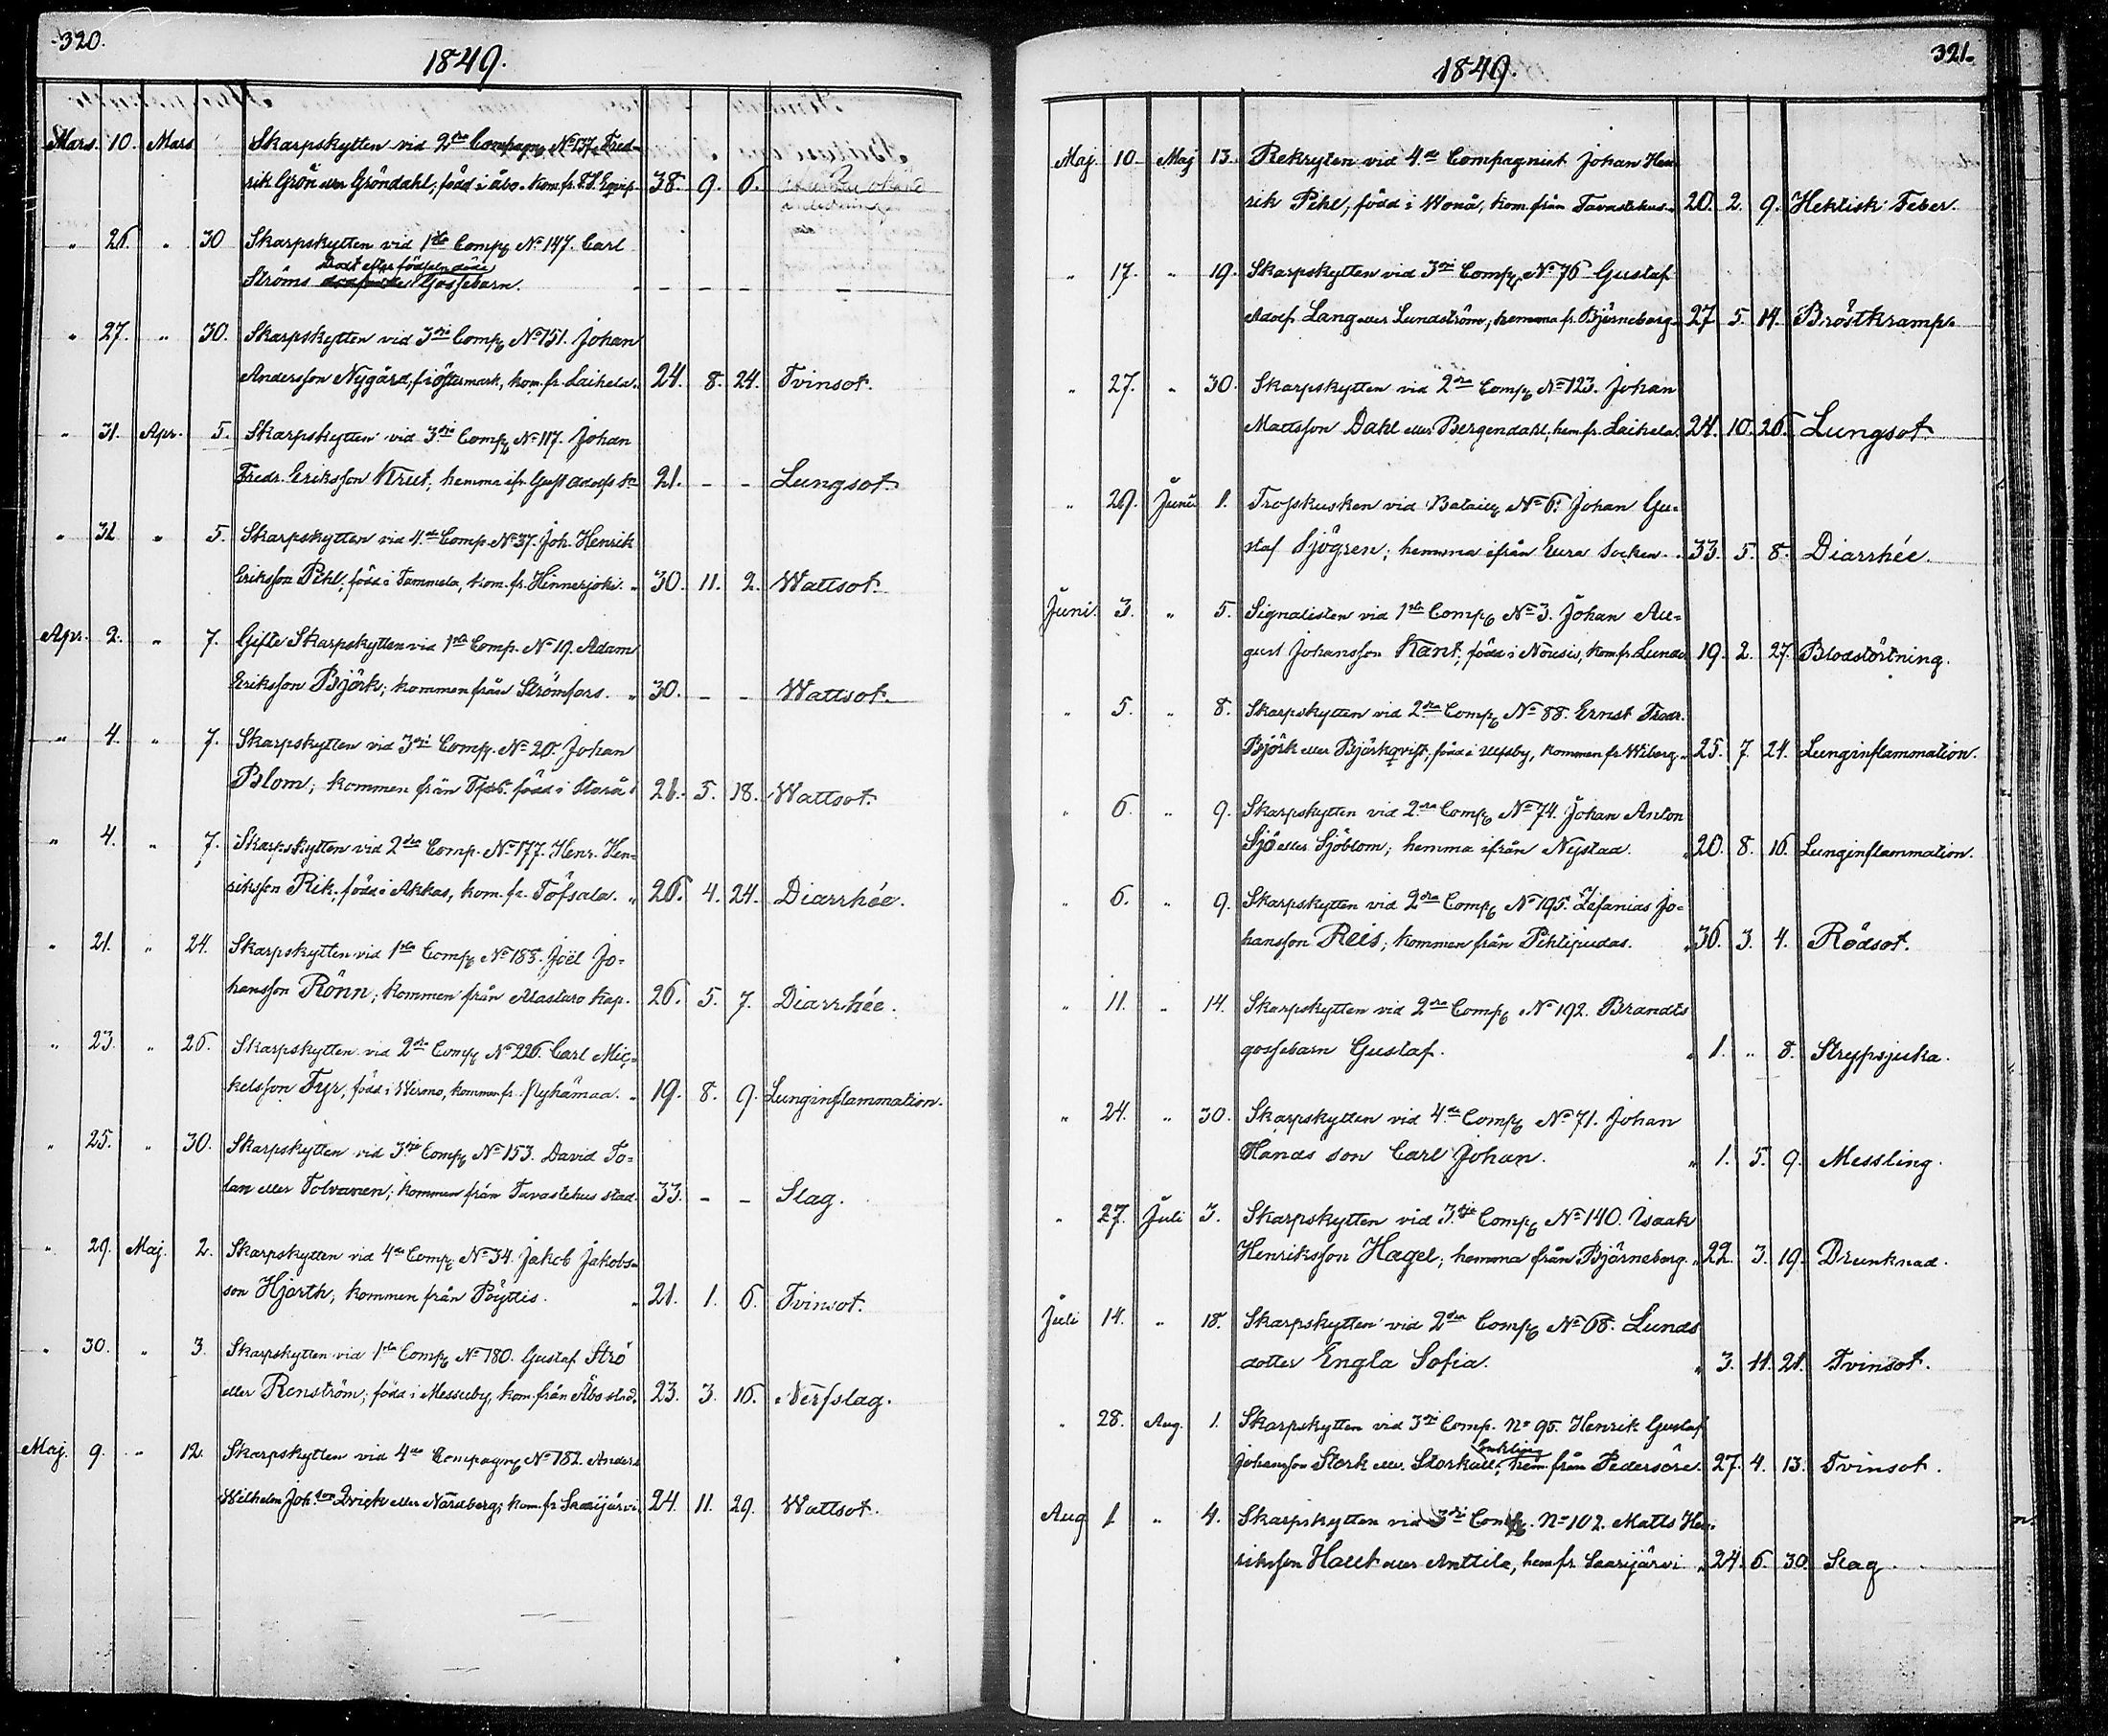 320.
1849.
Mars. 10. Mars Skarpskytten vid 2dra Compagn. No 137. Fred-
rik Grön eller Gröndahl, född i Åbo. kom. fr. 38. 9. 6.
" 26. " 30 Skarpskytten vid 1sta Comp. No 147. Carl
Dödt efter födseln döde
Ströms Gossebarn. - - - -
" 27. " 30. Skarpskytten vid 3dje Comp. No 151. Johan
Andersson Nygård, fr. Östermark, kom. fr. Laihela. 24. 8. 24. Tvinsot.
" 31. Apr. 5. Skarpskytten vid 3dje Comp. No 117. Johan
Fredr. Eriksson Krut, hemma ifr. Gust. Adolfs 21. - - Lungsot.
" 31 " 5. Skarpskytten vid 4de Comp. No 37. Joh. Henrik
Eriksson Pihl, född i Tammela, kom. fr. Hinnerjoki. " 30. 11. 2. Wattsot.
Apr. 2. " 7. Gifte Skarpskytten vid 1sta Comp. No 19. Adam
Eriksson Björk; kommen från Strömfors. " 30. - - Wattsot.
" 4. " 7. Skarpskytten vid 3dje Comp. No 20. Johan
Blom; kommen från född i Storå 21. 5. 18. Wattsot.
" 4. " 7. Skarpskytten vid 2dra Comp. No 177. Henr. Hen-
riksson Rik, född i Akkas, kom. fr. Töfsala. " 26. 4. 24. Diarrhée.
" 21. " 24. Skarpskytten vid 1sta Comp. No 183. Joël Jo-
hansson Rönn; kommen från Alastaro Kap. 26. 5. 7. Diarrhée.
" 23. " 26. Skarpskytten vid 2dra Comp. No 226. Carl Mic-
kelsson Fyr, född i Wirmo, kommen fr. Nykämaa. " 19. 8. 9. Lunginflammation.
" 25. " 30. Skarpskytten vid 3dje Comp. No 153. David To-
lan eller Tolvanen; kommen från Tavastehus stad. 33. - - Slag.
" 29. Maj. 2. Skarpskytten vid 4de Comp. No 34. Jakob Jakobs-
son Hjorth; kommen från Pöyttis. " 21. 1. 6. Tvinsot.
" 30. " 3. Skarpskytten vid 1sta Comp. No 180. Gustaf Strö
eller Renström; född i Messuby, kom. från Åbo stad. 23. 3. 16. Nerfslag.
Maj. 9. " 12. Skarpskytten vid 4de Compagn. No 182. Anders
Wilhelm Joh.son Qvick eller Nordberg; kom. fr. Saarijärvi. 24. 11. 29. Wattsot.
321.
1849.
Maj. 10. Maj 13. Rekryten vid 4de Compagniet Johan Hen-
rik Pihl, född i Wonå, kom. från Tavastehus. 20. 2. 9. Hektisk Feber.
" 17. " 19. Skarpskytten vid 3dje Comp. No 76 Gustaf
Adolf Lang eller Lundström, hemma fr. Björneborg. 27 5. 14. Bröstkramp.
" 27. " 30. Skarpskytten vid 2dra Comp. No 123. Johan
Mattsson Dahl eller Bergendahl, hem. fr. Laihela. 24. 10. 26. Lungsot.
" 29. Junii 1. Trosskusken vid Bataill. No 6. Johan Gu-
staf Sjögren; hemma ifrån Eura Socken. 33. 5. 8. Diarrhée.
Juni. 3. " 5. Signalisten vid 1sta Comp. No 3. Johan Au-
gust Johansson Kant, född i Nousis, kom. fr. Lundo 19. 2. 27. Blodstörtning.
" 5. " 8. Skarpskytten vid 2dra Comp. No 88. Ernst Fredr.
Björk eller Björkqvist, född i Ulfsby, kommen fr. Wiborg. 25. 7. 24. Lunginflammation.
" 6. " 9. Skarpskytten vid 2dra Comp. No 74. Johan Anton
Sjö eller Sjöblom; hemma ifrån Nystad. " 20. 8. 16. Lunginflammation.
" 6. " 9. Skarpskytten vid 2dra Comp. No 195. Zefanias Jo-
hansson Reis; kommen från Pihtipudas. " 36. 3. 4. Rödsot.
" 11. " 14. Skarpskytten vid 2dra Comp. No 192. Brandts
gossebarn Gustaf. " 1. " 8. Strypsjuka.
" 24. " 30. Skarpskytten vid 4de Comp. No 71. Johan
Hands son Carl Johan. " 1. 5. 9. Messling.
" 27. Juli 3. Skarpskytten vid 3dje Comp. No 140. Isaak
Henriksson Hagel; hemma från Björneborg. " 22. 3. 19. Drunknad.
Juli 14. " 18. Skarpskytten vid 2dra Comp. No 68. Lunds
dotter Engla Sofia. " 3. 11. 21. Tvinsot.
" 28. Aug. 1. Skarpskytten vid 3dje Comp. No 95. Henrik Gustaf
Johansson Stork eller Storkull; hem. från Pedersöre. 27. 4. 13. Tvinsot.
Aug 1 " 4. Skarpskytten vid 3dje Comp. No 102. Matts Hen-
riksson Hatt eller Anttila, hem fr. Saarijärvi " 24. 6. 30. Slag